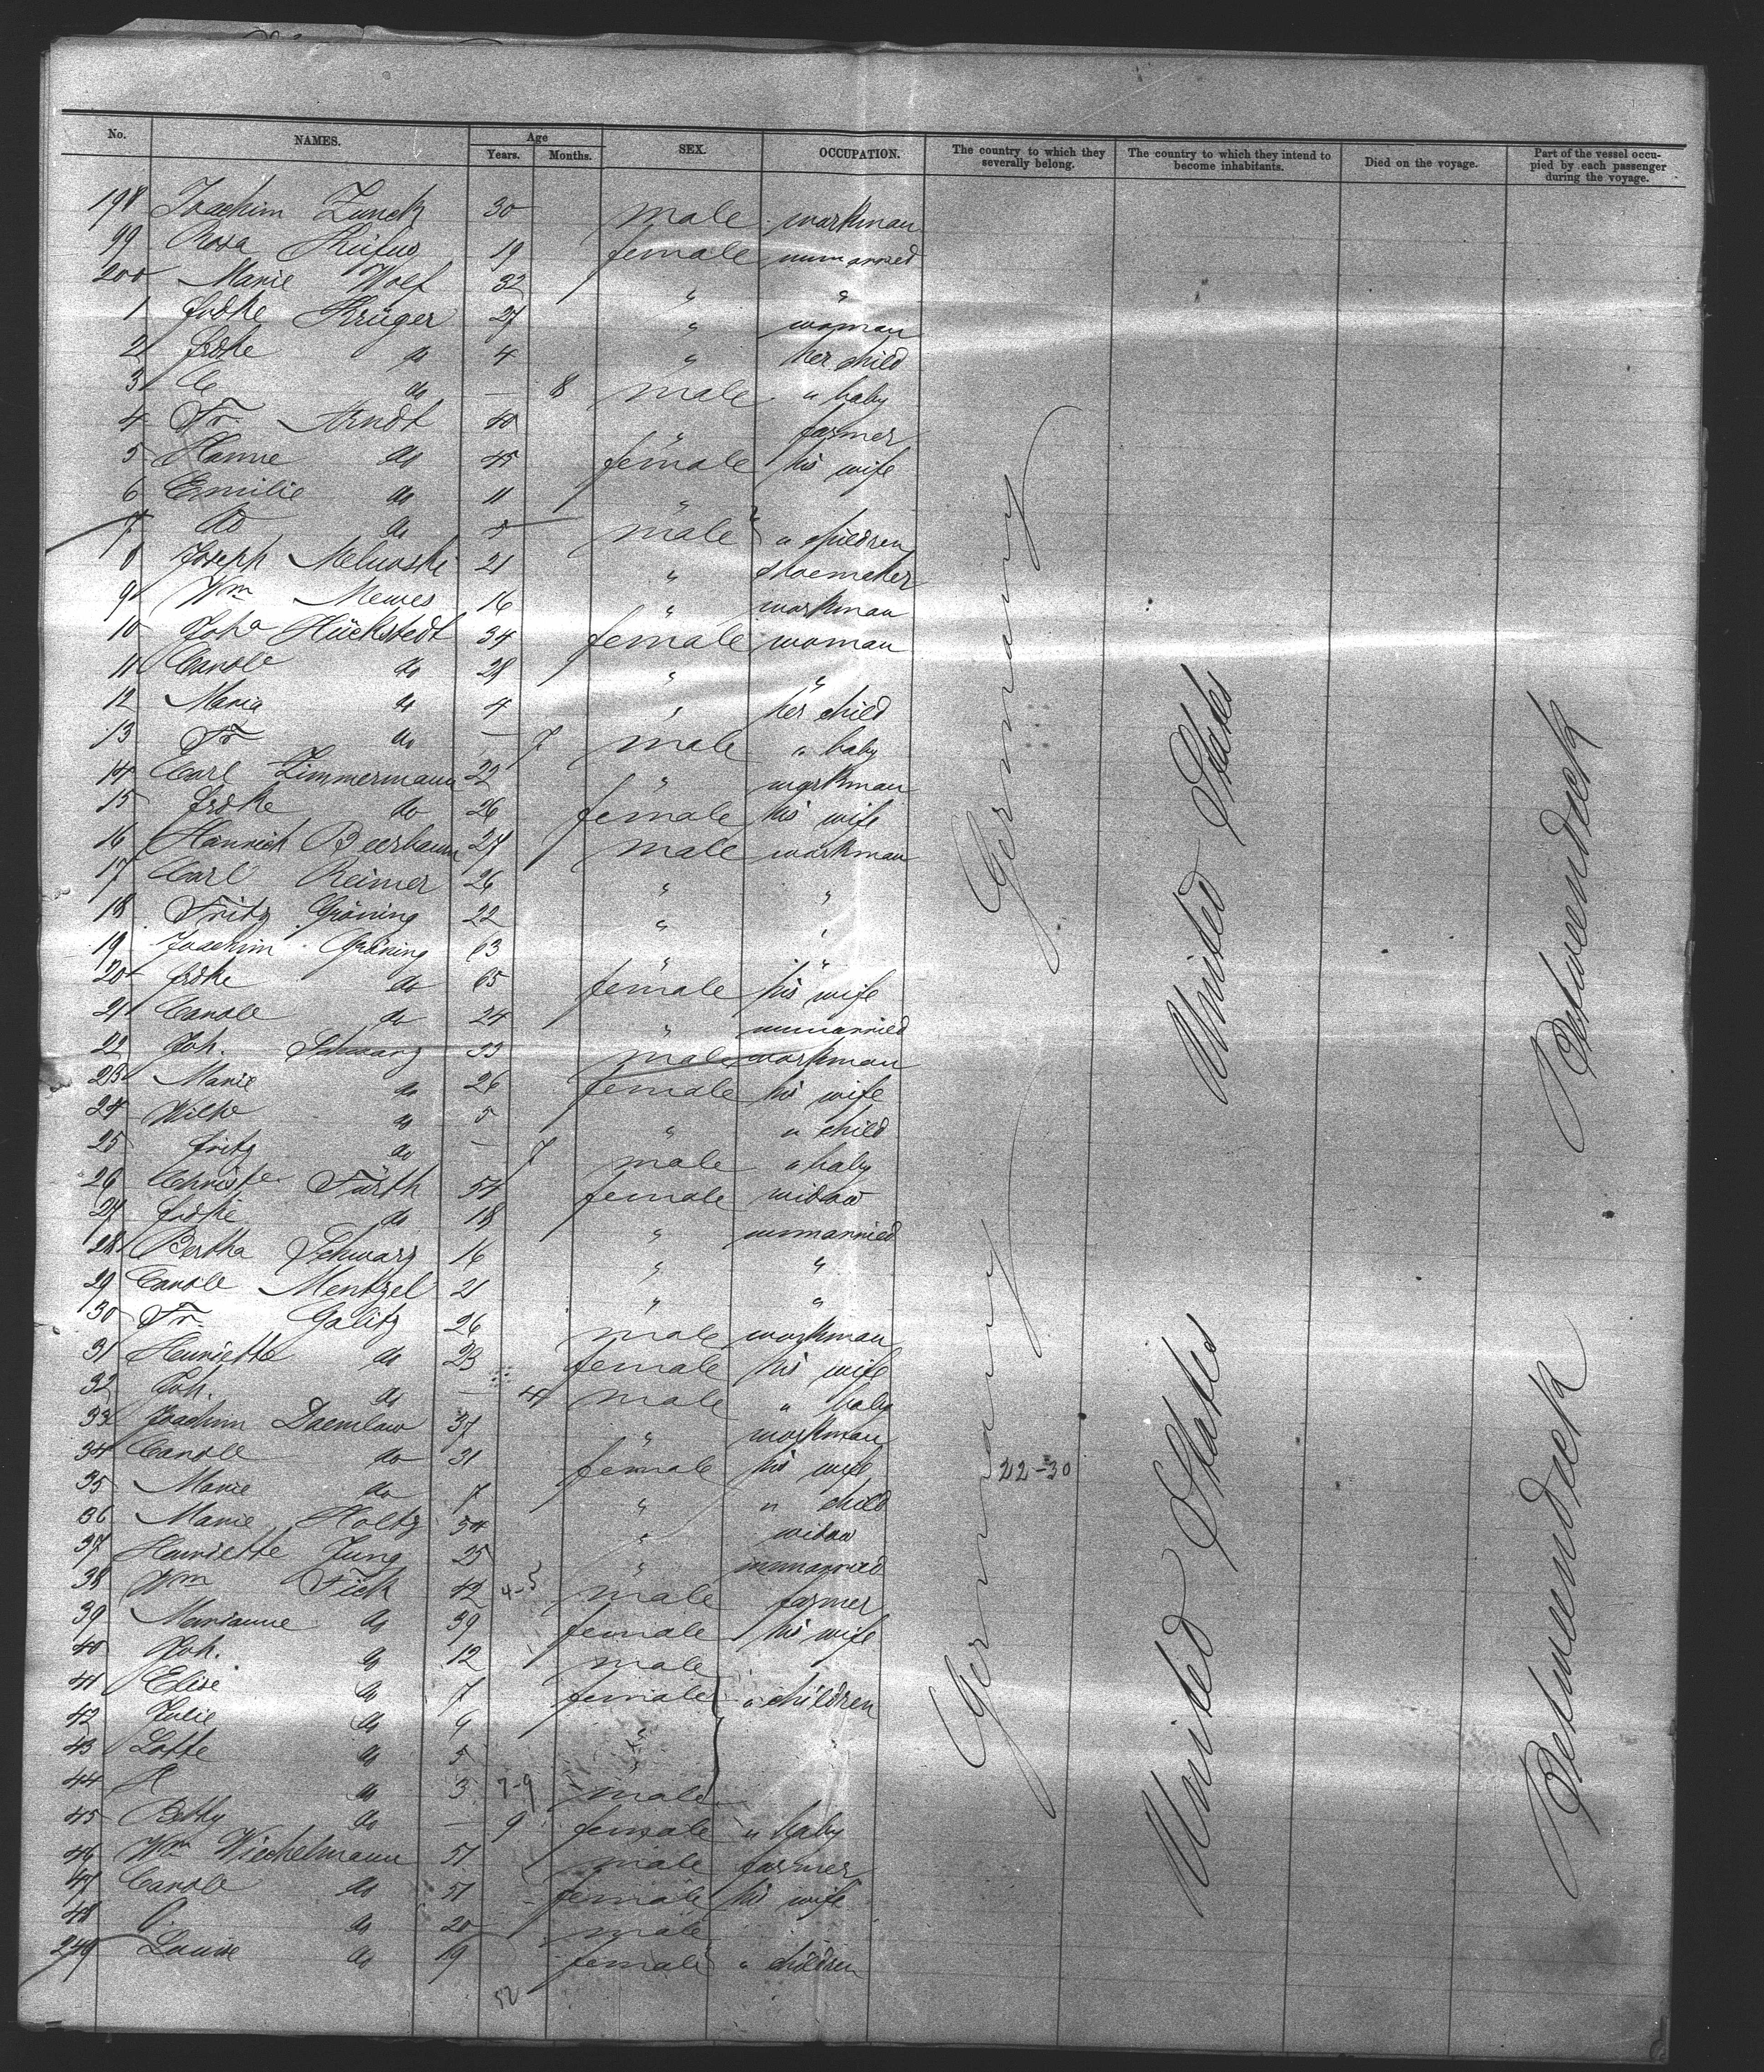 No. NAMES. Age Years. Months. SEX. OCCUPATION. The country to which they severally belong. The country to which they intend to become inhabitants. Died on the voyage. Part of the vessel occupied by each passenger during the voyage.
198 Joachim Zunck 30 male workman
99 Rosa Rüfus 19 female unmarried
200 Marie Wolf 32 " "
1 Fridke Krüger 27 " woman
2 Fridke do 4 " her child
3 C do — 8 male " baby
4 Fr. Arndt 40 " farmer
5 Hanne do 45 female his wife
6 Emilie do 11 "
7 do 5 male " children
8 Joseph 21 " shoemaker
9 Wm Mewes 16 " workman
10 Joha Hückstedt 34 female woman
11 Carole do 28 " "
12 Maria do 4 " her child
13 Fr do — 7 male " baby
14 Carl Zimmermann 22 " workman
15 Fridke do 26 female his wife
16 Heinrich Beerbaum 27 male workman
17 Carl Reimer 26 " "
18 Fritz Gröning 22 " "
19 Joachim Gröning 63 " "
20 Fridke do 65 female his wife
21 Carole do 24 " unmarried
22 Joh. Schwarz 33 male workman
23 Marie do 26 female his wife
24 Wilhe do 5 " " child
25 Fritz do — 7 male " baby
26 Christe Fürth 54 female widow
27 Fridke do 18 " unmarried
28 Bertha Schwarz 16 " "
29 Carole Mentzel 21 " "
30 Fr. Galitz 26 male workman
31 Henriette do 23 female his wife
32 Joh. do — 4 male " baby
33 Joachim Daemlow 37 " workman
34 Carole do 31 female his wife
35 Marie do 7 " " child
36 Marie Holtz 54 " widow
37 Henriette Jung 25 " unmarried
38 Wm Fick 42 4-5 male farmer
39 Marianne do 39 female his wife
40 Joh. do 12 male
41 Elise do 7 female " children
42 Julie do 6 "
43 Lotte do 5 "
44 H do 3 7-9 male
45 Betty do — 9 female " baby
46 Wm Wiechelmann 51 male farmer
47 Carole do 51 female his wife
48 do 20 male
249 Louise do 19 female " children
52
Germany
Germany
22-30
United States
United States
Betweendeck
Betweendeck